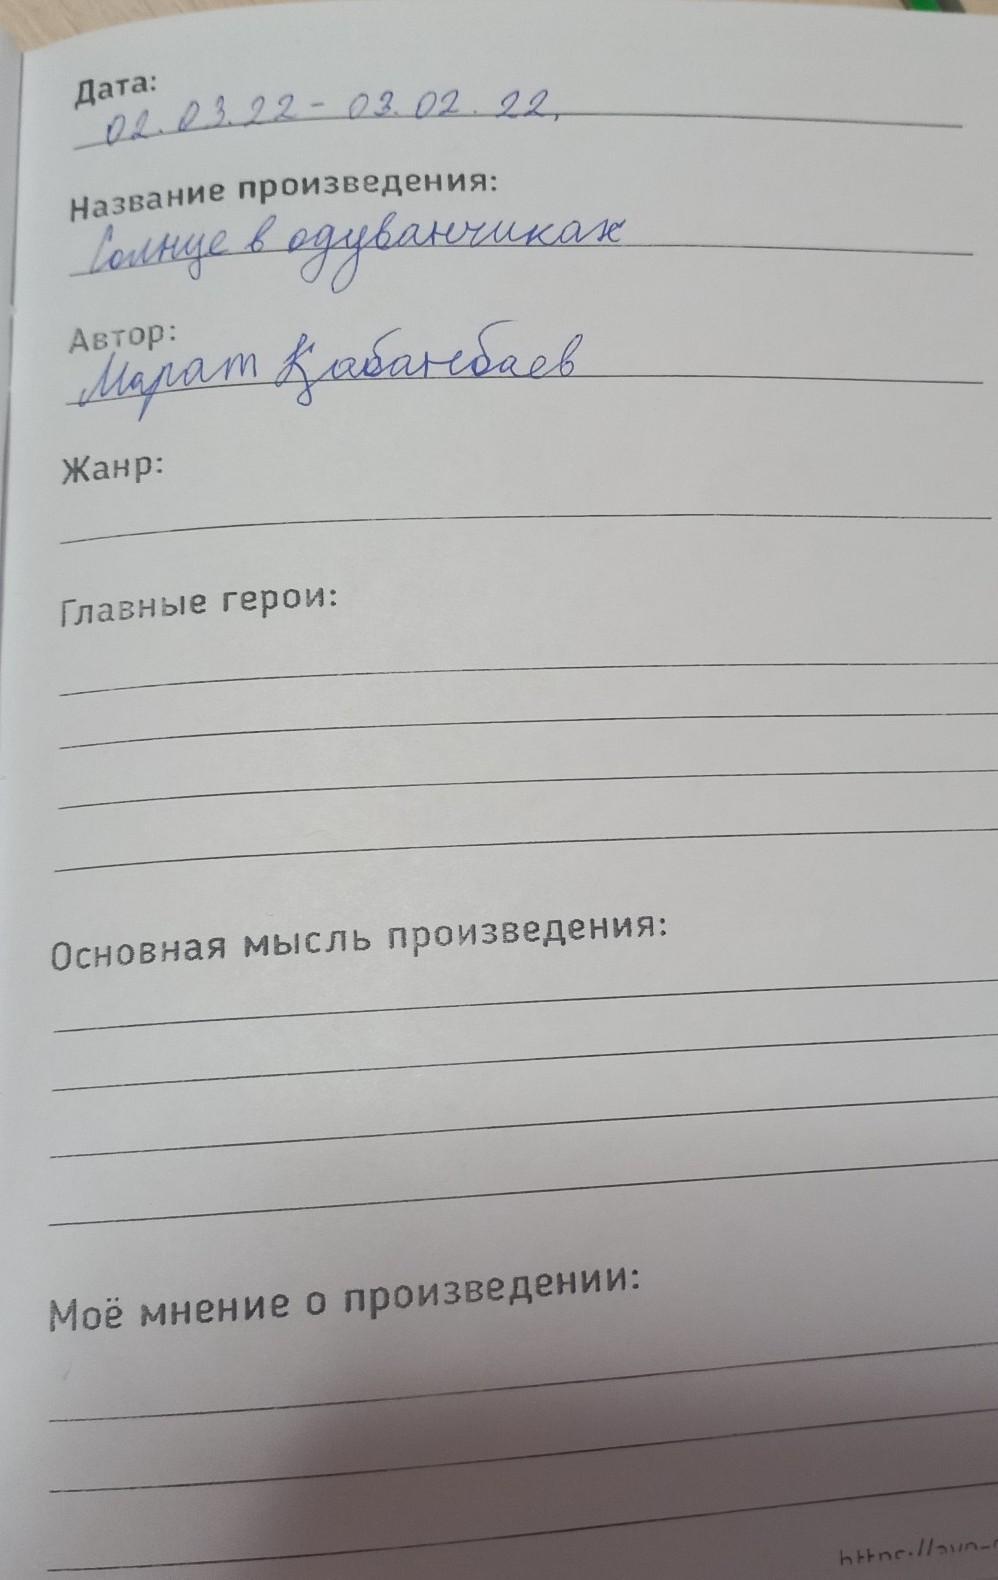 Дата:
02.03.22 - 03.02.22,
Название произведения:
Солнце в одуванчиках
Автор:
Марат Қабанбаев
Жанр:
Главные герои:
Основная мысль произведения:
Моё мнение о произведении: